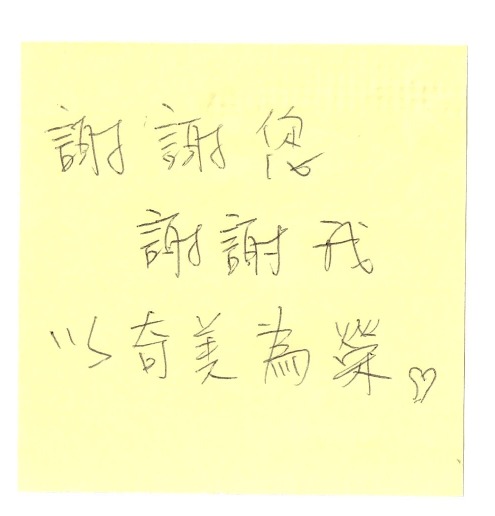 謝謝您
謝謝我
以奇美為榮♡